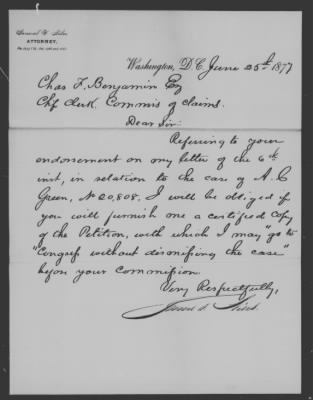 Samuel V. Niles,
ATTORNEY,
Washington, D.C. June 25th 1877
Chas F. Benjamin Eq
Chf Clerk. Commis of claims.
Dear Sir
Referring to your
endorsement on my letter of the 6th
inst, in relation to the case of A. C
Green, No 20,808. I will be obliged if
you will furnish me a certified copy
of the Petition, with which I may "go to
"Congress without dismissing the case"
before your Commission
Very Respectfully,